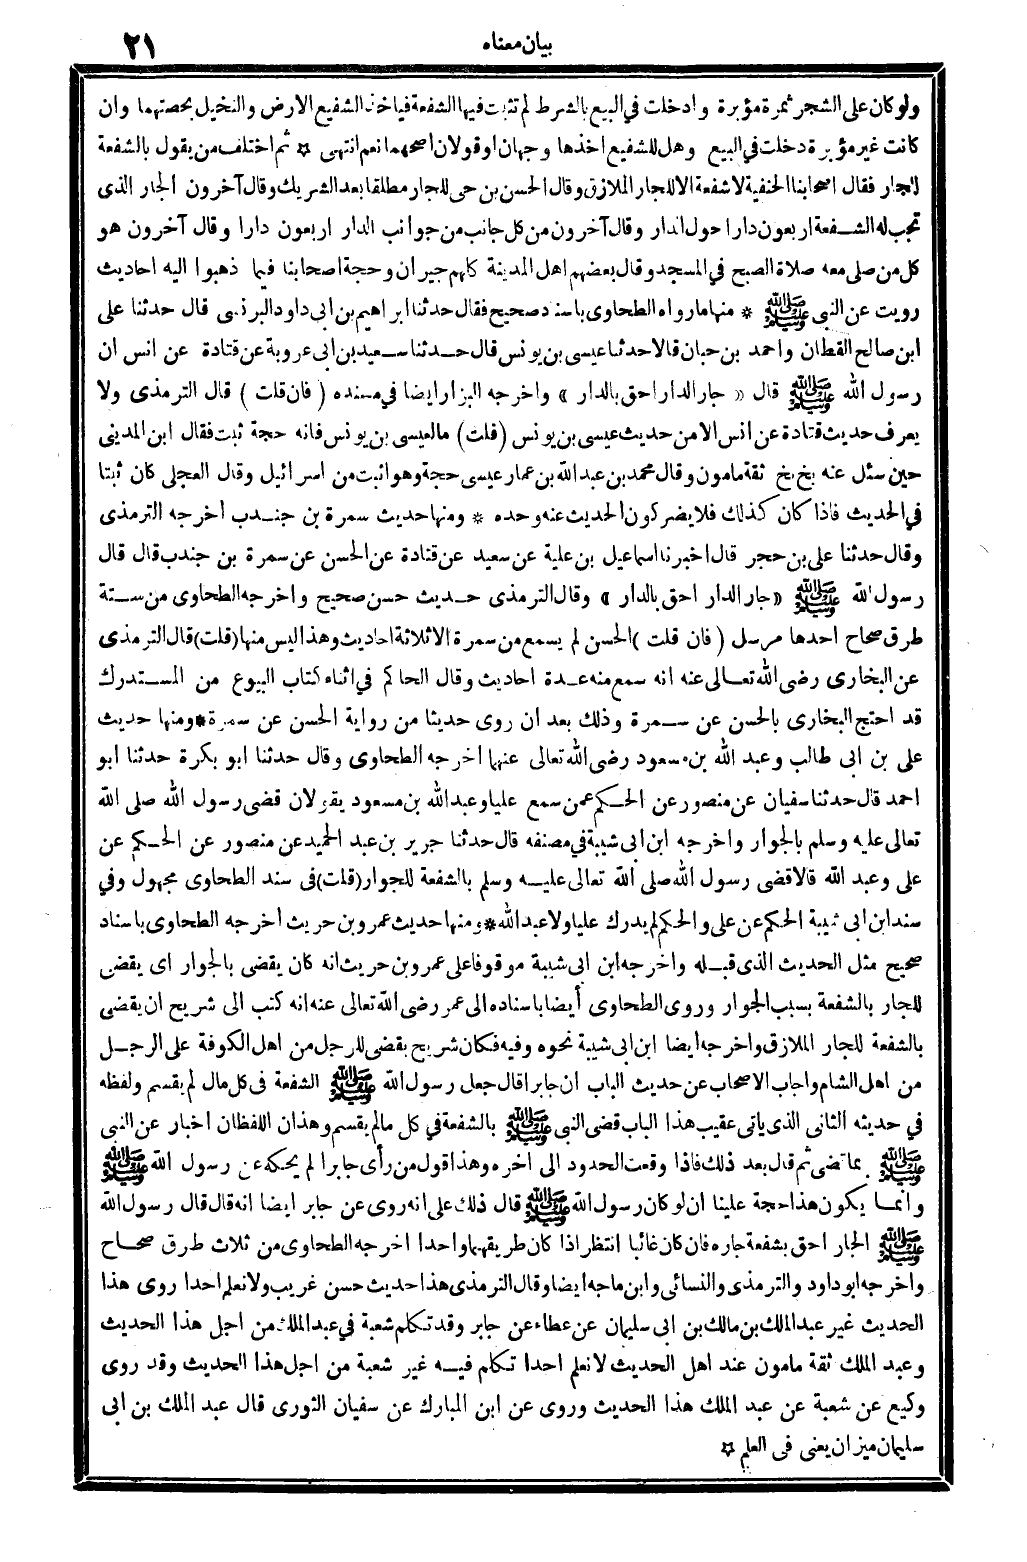 بيان معناه ٢١
ولو كان على الشجر ثمرة مؤبرة وادخلت في البيع بالشرط لم تثبت فيها الشفعة فياخذ الشفيع الارض والنخيل بحصتهما وان
كانت غير مؤبرة دخلت في البيع وهل للشفيع اخذها وجهان او قولان اصحهما نعم انتهى ۞ ثم اختلف من يقول بالشفعة
للجار فقال اصحابنا الحنفية لا شفعة الا للجار الملازق وقال الحسن بن حى للجار مطلقا بعد الشريك وقال آخرون الجار الذى
تجب له الشفعة اربعون دارا حول الدار وقال آخرون من كل جانب من جوانب الدار اربعون دارا وقال آخرون هو
كل من صلى معه صلاة الصبح في المسجد وقال بعضهم اهل المدينة كلهم جيران وحجة اصحابنا فيما ذهبوا اليه احاديث
رويت عن النبى ﷺ * منها مارواه الطحاوى باسناد صحيح فقال حدثنا ابراهيم بن ابى داود البرلسى قال حدثنا على
ابن صالح القطان واحمد بن حبان قالا حدثنا عيسى بن يونس قال حدثنا سعيد بن ابى عروبة عن قتادة عن انس ان
رسول الله ﷺ قال « جار الدار احق بالدار » واخرجه البزار ايضا في مسنده ( فان قلت ) قال الترمذى ولا
يعرف حديث قتادة عن انس الا من حديث عيسى بن يونس (قلت) مالعيسى بن يونس فانه حجة ثبت فقال ابن المدينى
حين سئل عنه بخ بخ ثقة مامون وقال محمد بن عبد الله بن عمار عيسى حجة وهو اثبت من اسرائيل وقال العجلى كان ثبتا
في الحديث فاذا كان كذلك فلا يضر كون الحديث عنه وحده * ومنها حديث سمرة بن جندب اخرجه الترمذى
وقال حدثنا على بن حجر قال اخبرنا اسماعيل بن علية عن سعيد عن قتادة عن الحسن عن سمرة بن جندب قال قال
رسول الله ﷺ «جار الدار احق بالدار » وقال الترمذى حديث حسن صحيح واخرجه الطحاوى من ستة
طرق صحاح احدها مرسل ( فان قلت ) الحسن لم يسمع من سمرة الا ثلاثة احاديث وهذا ليس منها (قلت) قال الترمذى
عن البخارى رضى الله تعالى عنه انه سمع منه عدة احاديث وقال الحاكم في اثناء كتاب البيوع من المستدرك
قد احتج البخارى بالحسن عن سمرة وذلك بعد ان روى حديثا من رواية الحسن عن سمرة * ومنها حديث
على بن ابى طالب وعبد الله بن مسعود رضى الله تعالى عنهما اخرجه الطحاوى وقال حدثنا ابو بكرة حدثنا ابو
احمد قال حدثنا سفيان عن منصور عن الحكم عمن سمع عليا وعبد الله بن مسعود يقولان قضى رسول الله صلى الله
تعالى عليه وسلم بالجوار واخرجه ابن ابى شيبة في مصنفه قال حدثنا جرير بن عبد الحميد عن منصور عن الحكم عن
على وعبد الله قالا قضى رسول الله صلى الله تعالى عليه وسلم بالشفعة للجوار (قلت) فى سند الطحاوى مجهول وفي
سند ابن ابى شيبة الحكم عن على والحكم لم يدرك عليا ولا عبد الله * ومنها حديث عمرو بن حريث اخرجه الطحاوى باسناد
صحيح مثل الحديث الذى قبله واخرجه ابن ابى شيبة موقوفا على عمرو بن حريث انه كان يقضى بالجوار اى يقضى
للجار بالشفعة بسبب الجوار وروى الطحاوى أيضا باسناده الى عمر رضى الله تعالى عنه انه كتب الى شريح ان يقضى
بالشفعة للجار الملازق واخرجه ايضا ابن ابى شيبة نحوه وفيه فكان شريح يقضى للرجل من اهل الكوفة على الرجل
من اهل الشام واجاب الاصحاب عن حديث الباب ان جابرا قال جعل رسول الله ﷺ الشفعة فى كل مال لم يقسم ولفظه
في حديثه الثانى الذى ياتى عقيب هذا الباب قضى النبى ﷺ بالشفعة في كل مالم يقسم وهذان اللفظان اخبار عن النبى
ﷺ بما قضى ثم قال بعد ذلك فاذا وقعت الحدود الى اخره وهذا قول من رأى جابر لم يحكه عن رسول الله ﷺ
وانما يكون هذا حجة علينا ان لو كان رسول الله ﷺ قال ذلك على انه روى عن جابر ايضا انه قال قال رسول الله
ﷺ الجار احق بشفعة جاره فان كان غائبا انتظر اذا كان طريقهما واحدا اخرجه الطحاوى من ثلاث طرق صحاح
واخرجه ابو داود والترمذى والنسائى وابن ماجه ايضا وقال الترمذى هذا حديث حسن غريب ولا نعلم احدا روى هذا
الحديث غير عبد الملك بن مالك بن ابى سليمان عن عطاء عن جابر وقد تكلم شعبة في عبد الملك من اجل هذا الحديث
وعبد الملك ثقة مامون عند اهل الحديث لا نعلم احدا تكلم فيه غير شعبة من اجل هذا الحديث وقد روى
وكيع عن شعبة عن عبد الملك هذا الحديث وروى عن ابن المبارك عن سفيان الثورى قال عبد الملك بن ابى
سليمان ميزان يعنى فى العلم ۞